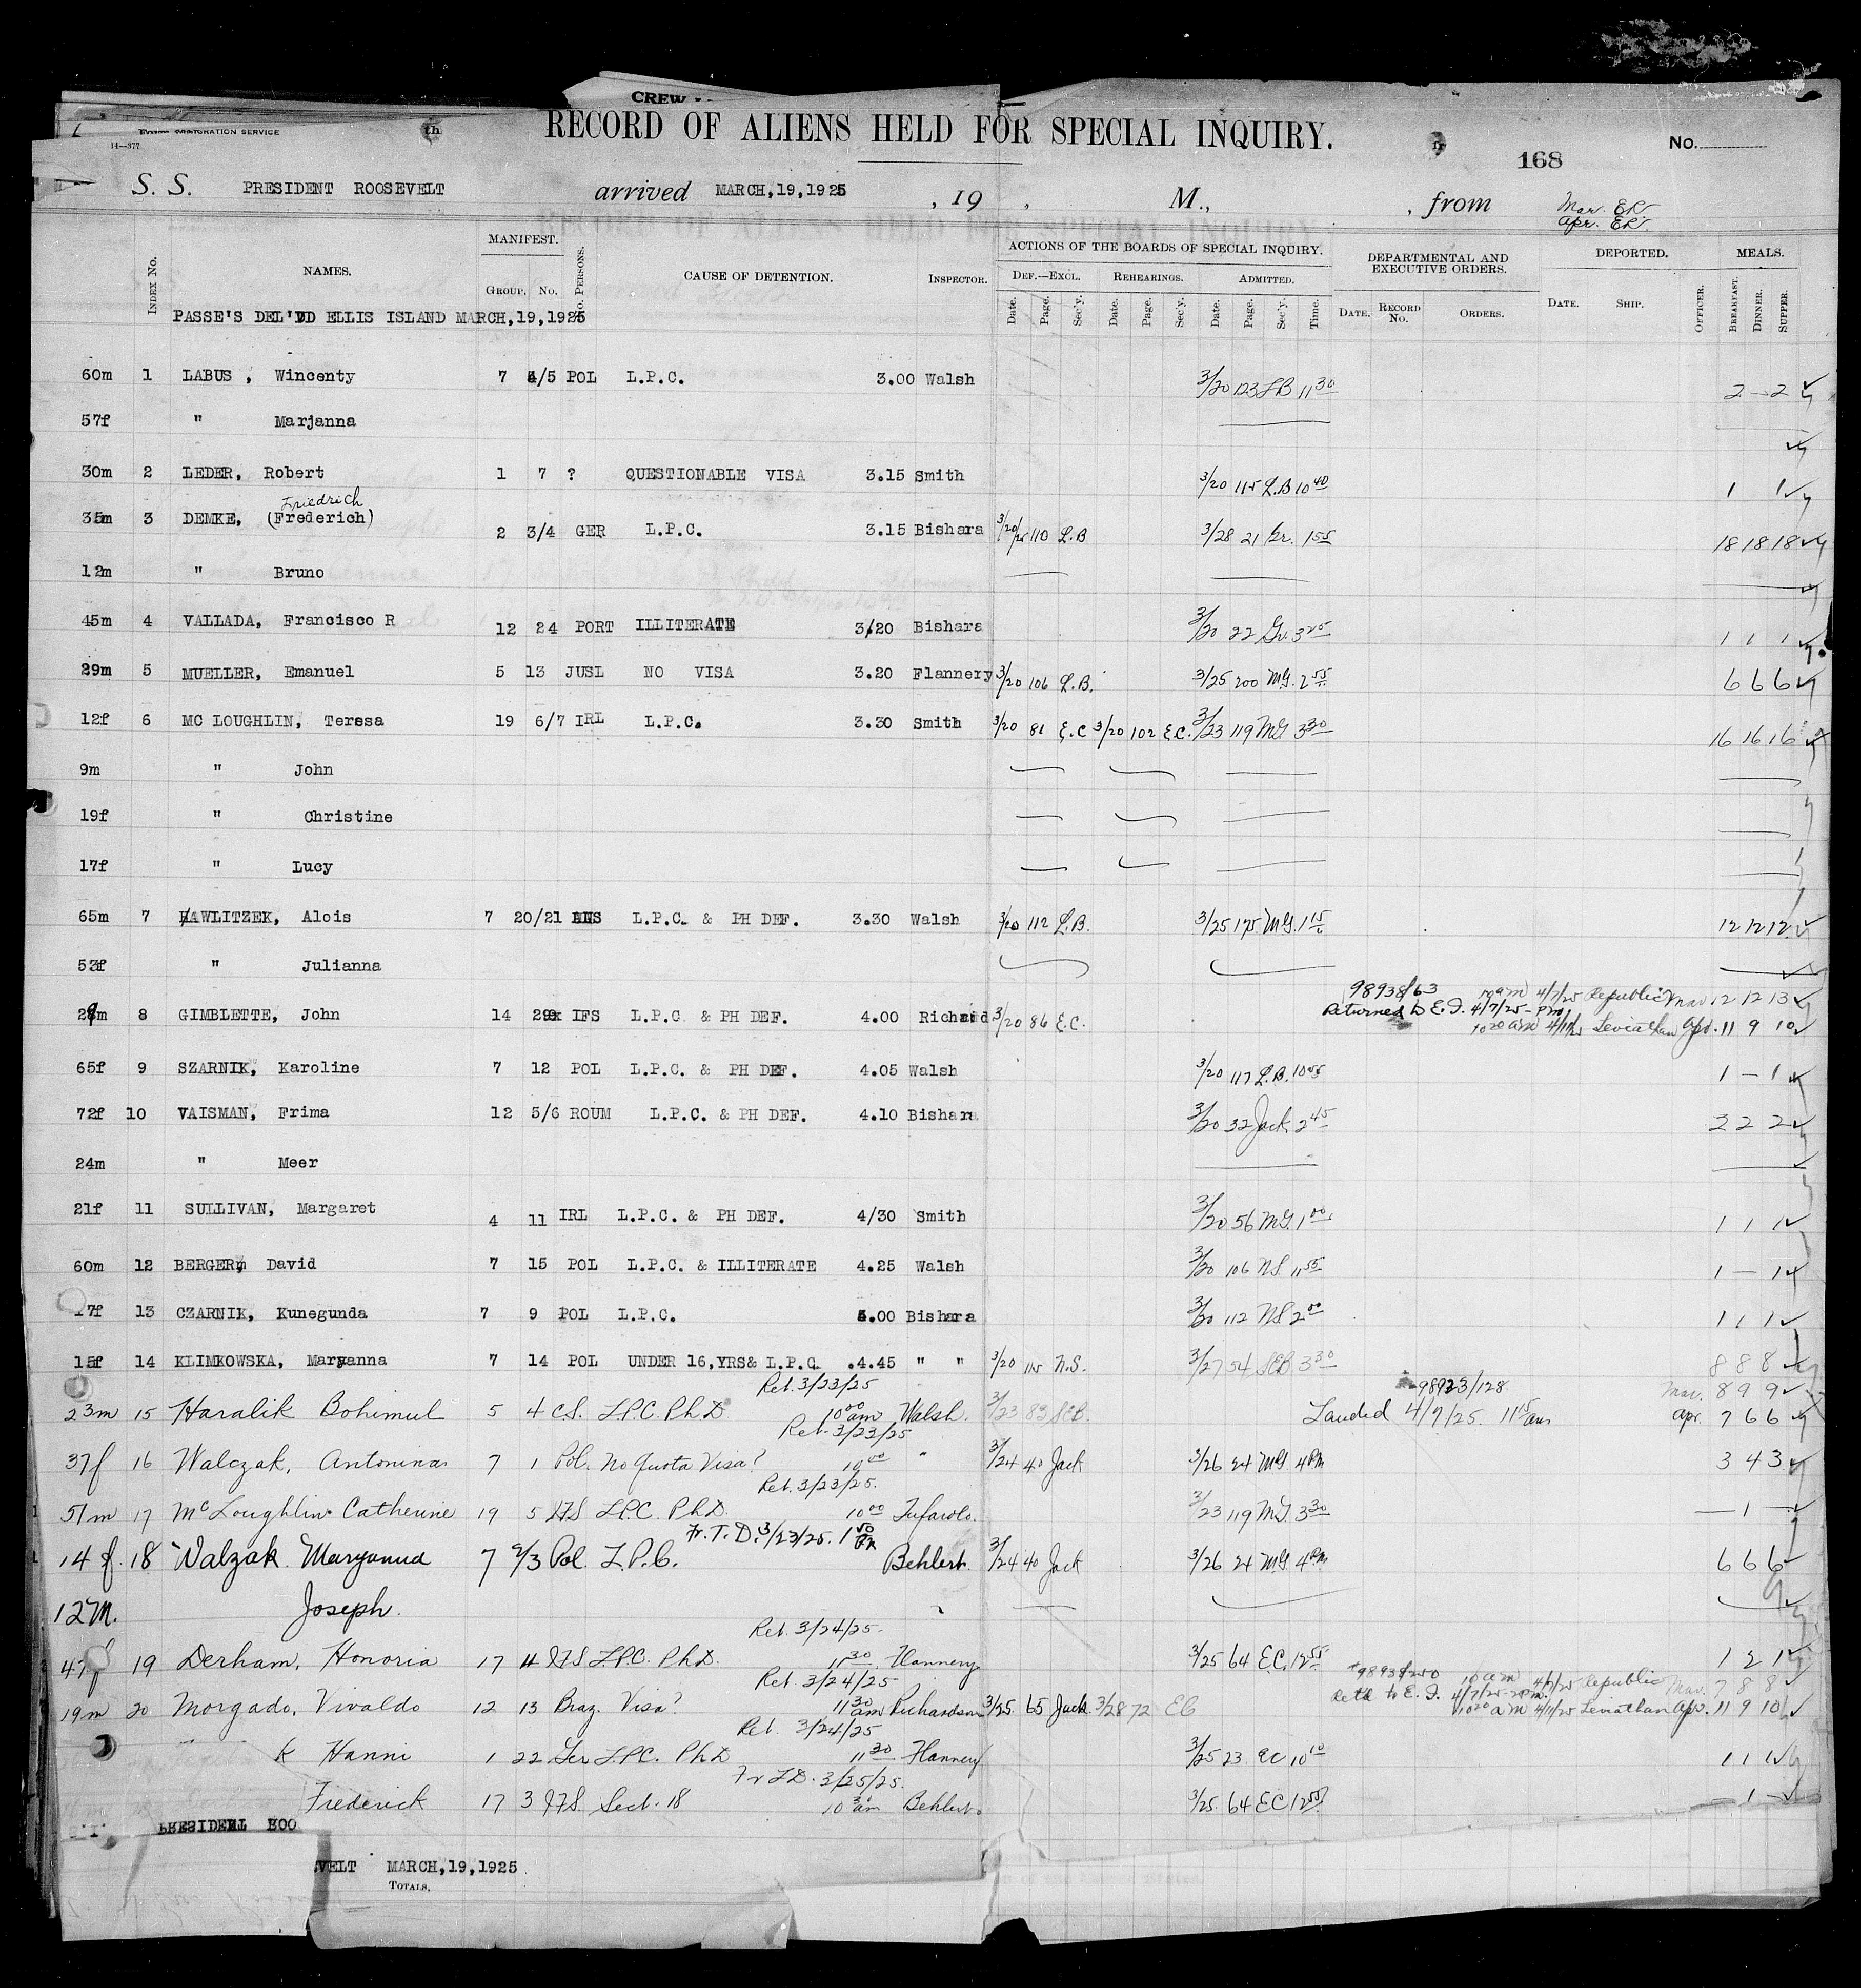 CREW
IMMIGRATION SERVICE
14—377
RECORD OF ALIENS HELD FOR SPECIAL INQUIRY.
No.
168
S. S. PRESIDENT ROOSEVELT arrived MARCH,19,1925 , 19 , M., , from
Mar. ER
Apr. ER.
INDEX No. NAMES. MANIFEST. GROUP. No. NO. PERSONS. CAUSE OF DETENTION. INSPECTOR. ACTIONS OF THE BOARDS OF SPECIAL INQUIRY. DEF.—EXCL. Date. Page. Sec'y. REHEARINGS. Date. Page. Sec'y. ADMITTED. Date. Page. Sec'y. Time. DEPARTMENTAL AND EXECUTIVE ORDERS. DATE. RECORD No. ORDERS. DEPORTED. DATE. SHIP. OFFICER. MEALS. BREAKFAST. DINNER. SUPPER.
PASSE'S DEL'VD ELLIS ISLAND MARCH,19,1925
60m 1 LABUS , Wincenty 7 4/5 POL L.P.C. 3.00 Walsh 3/20 123 LB 11 30 2 — 2
57f " Marjanna
30m 2 LEDER, Robert 1 7 ? QUESTIONABLE VISA 3.15 Smith 3/20 115 L.B 10 40 1 1
Friedrich
35m 3 DEMKE, (Frederich) 2 3/4 GER L.P.C. 3.15 Bishara 3/20/25 110 L.B 3/28 21 Gr. 1 55 18 18 18
12m " Bruno
45m 4 VALLADA, Francisco R 12 24 PORT ILLITERATE 3/20 Bishara 3/20 22 Gr. 3 25 1 1 1
29m 5 MUELLER, Emanuel 5 13 JUSL NO VISA 3.20 Flannery 3/20 106 L.B. 3/25 200 M.G. 2 55 6 6 6
12f 6 MC LOUGHLIN, Teresa 19 6/7 IRL L.P.C. 3.30 Smith 3/20 81 E.C 3/20 102 E.C. 3/23 119 MG 3 30 16 16 16
9m " John
19f " Christine
17f " Lucy
65m 7 HAWLITZEK, Alois 7 20/21 AUS L.P.C. & PH DEF. 3.30 Walsh 3/20 112 L.B. 3/25 175 M.G. 1 15 12 12 12
53f " Julianna
98938/63 10 am 4/7/25 Republic Mar 12 12 13
29m 8 GIMBLETTE, John 14 29 IFS L.P.C & PH DEF. 4.00 Richard 3/20 86 E.C. Returned to E.I. 4/7/25 - PM
10 20 am 4/11/25 Leviathan Apr. 11 9 10
65f 9 SZARNIK, Karoline 7 12 POL L.P.C. & PH DEF. 4.05 Walsh 3/20 117 L.B. 10 45 1 — 1
72f 10 VAISMAN, Frima 12 5/6 ROUM L.P.C. & PH DEF. 4.10 Bishara 3/20 32 Jack 2 45 2 2 2
24m " Meer
21f 11 SULLIVAN, Margaret 4 11 IRL L.P.C. & PH DEF. 4/30 Smith 3/20 56 MG 1 00 1 1 1
60m 12 BERGER, David 7 15 POL L.P.C. & ILLITERATE 4.25 Walsh 3/20 106 NS 11 55 1 — 1
17f 13 CZARNIK, Kunegunda 7 9 POL L.P.C. 5.00 Bishara 3/20 112 NS 2 00 1 1 1
15f 14 KLIMKOWSKA, Maryanna 7 14 POL UNDER 16,YRS& L.P.C. .4.45 " " 3/20 115 N.S. 3/27 54 SEB 3 30 8 8 8
Ret. 3/23/25 98933/128 Mar. 8 9 9
23m 15 Haralik Bohimul 5 4 CS. L.P.C. Ph.D 10 00 am Walsh. 3/23 83 SEB. Landed 4/7/25. 11 15 am Apr. 7 6 6
Ret. 3/23/25
37f 16 Walczak, Antonina 7 1 Pol. No Quota Visa? 10 00 " 3/24 40 Jack 3/26 24 MG 4 PM 3 4 3
Ret. 3/23/25.
51m 17 McLoughlin Catherine 19 5 IFS L.P.C. Ph.D. 10 00 Tufarolo. 3/23 119 MG 3 30 — 1 —
Fr. T. D. 3/23/25. 1 50 PM
14 f. 18 Walzak Maryanna 7 2/3 Pol L.P.C. Behlert. 3/24 40 Jack 3/26 24 M.G. 4 PM 6 6 6
12 M. Joseph.
Ret. 3/24/25.
47f 19 Derham, Honoria 17 4 IFS L.P.C. Ph.D. 11 30 Flannery 3/25 64 E.C. 12 55 1 2 1
Ret. 3/24/25 10 am 4/7/25 Republic Mar. 7 8 8
19m 20 Morgado, Vivaldo 12 13 Braz. Visa? 11 30 am Richardson 3/25 65 Jack 3/28 72 EC Retd to E. I. 4/7/25-PM.
10 20 am 4/11/25 Leviathan Apr. 11 9 10
Ret. 3/24/25
k Hanni 1 22 Ger L.P.C. Ph.D 11 30 Flannery 3/25 23 EC 10 10 1 1 1
Fr T.D. 3/25/25.
Frederick 17 3 IFS. Sect. 18 10 30 am Behlert. 3/25 64 EC 12 55 — 1 —
PRESIDENT ROO
EVELT MARCH,19,1925
TOTALS.